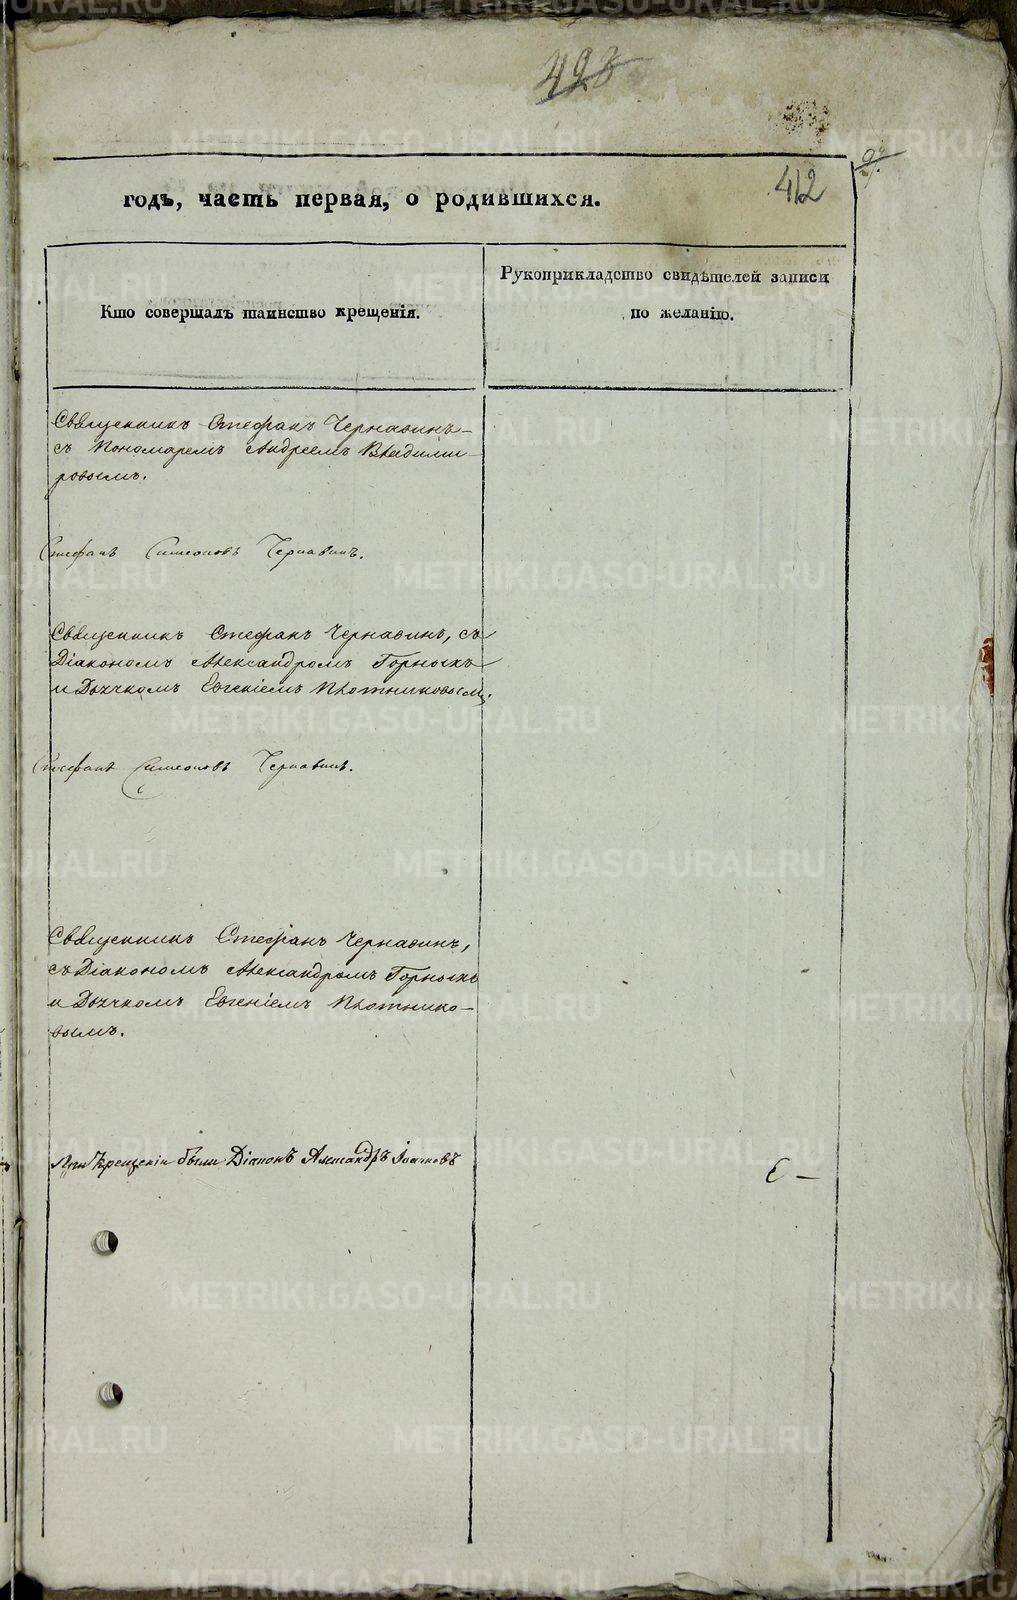 498
412
годъ, часть первая, о родившихся.
Кто совершалъ таинство крещенія.
Рукоприкладство свидѣтелей записи
по желанію.
Священникъ Стефанъ Чернавинъ
съ Пономаремъ Андреемъ Владими-
ровымъ.
Стефанъ Симеоновъ Чернавинъ.
Священникъ Стефанъ Чернавинъ, съ
Діакономъ Александромъ Горныхъ
и Дьячкомъ Евгеніемъ Плотниковымъ.
Стефанъ Симеоновъ Чернавинъ.
Священникъ Стефанъ Чернавинъ,
съ Діакономъ Александромъ Горныхъ
и Дьячкомъ Евгеніемъ Плотнико-
вымъ.
При Крещеніи были Діаконъ Александръ
METRIKI.GASO-URAL.RU